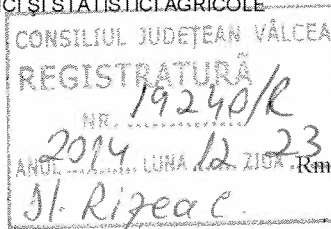 CI ȘI STATISTICI AGRICOLE
CONSILIUL JUDEȚEAN VÂLCEA
REGISTRATURĂ
NR. 19240/R
ANUL 2014 LUNA 12 ZIUA 23
Rîm
Dl. Rizea C.